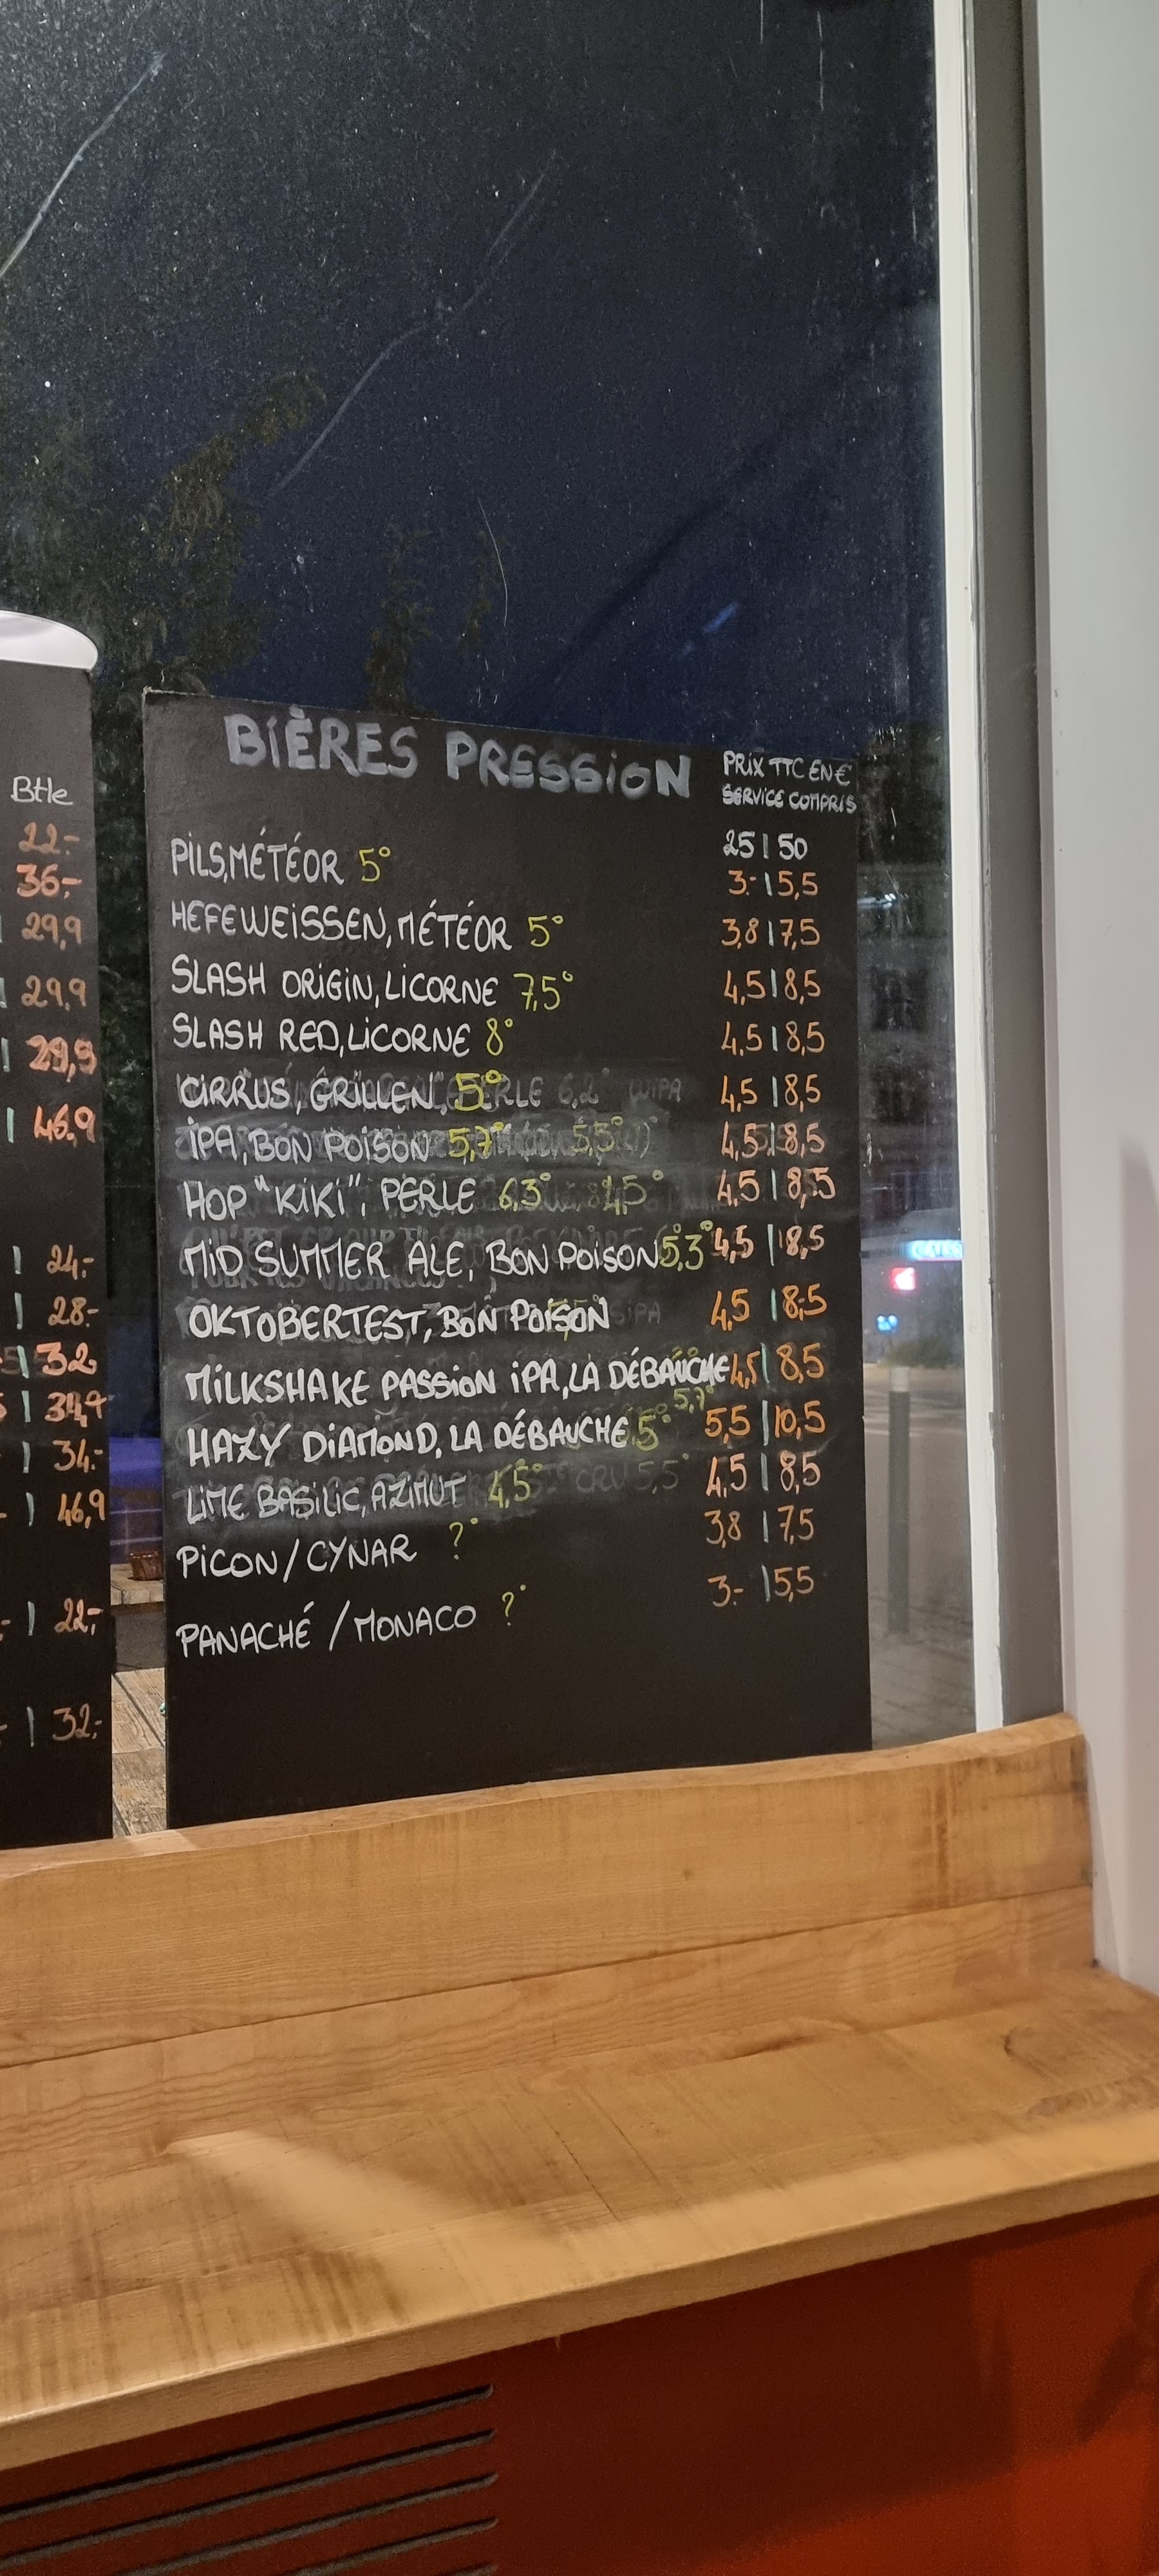 Btle
22.-
36,-
29,9
29,9
29,9
46,9
24.-
28.-
32
34.-
46,9
22,-
32,-
BIÈRES PRESSION
PRIX TTC EN €
SERVICE COMPRIS
25 | 50
PILS, MÉTÉOR 5° 3.- | 5,5
HEFEWEISSEN, MÉTÉOR 5° 3,8 | 7,5
SLASH ORIGIN, LICORNE 7,5° 4,5 | 8,5
SLASH RED, LICORNE 8° 4,5 | 8,5
CIRRUS, GRILLEN, 5° 4,5 | 8,5
IPA, BON POISON 5,7° 4,5 | 8,5
HOP "KIKI", PERLE 6,3° 4,5 | 8,5
MID SUMMER ALE, BON POISON 5,3° 4,5 | 8,5
OKTOBERTEST, BON POISON 4,5 | 8,5
MILKSHAKE PASSION IPA, LA DÉBAUCHE 4,5 | 8,5
5,7°
HAZY DIAMOND, LA DÉBAUCHE 5° 5,5 | 10,5
LIME BASILIC, AZIMUT 4,5° 4,5 | 8,5
PICON / CYNAR ?° 3,8 | 7,5
PANACHÉ / MONACO ?° 3.- | 5,5